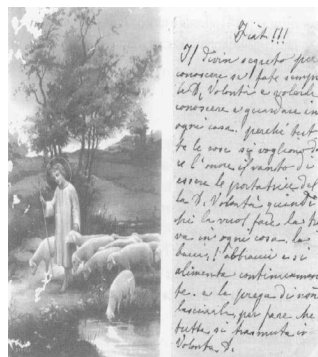 Fiat !!!
Il divin segreto per
conoscere se fate sempre
la D. Volontà e volerla
conoscere e guardare in
ogni cosa. perché tut
te le cose si vogliono
re l'onore il vanto di
essere le portatrice del
la D. Volontà quando
poi la vuol fare la tro
va in ogni cosa, la
bacia, l'abbraccia e si
alimenta continuamen
te. e la prega di non
lasciarla, per fare che
tutta si trasmuta in
Volontà D.